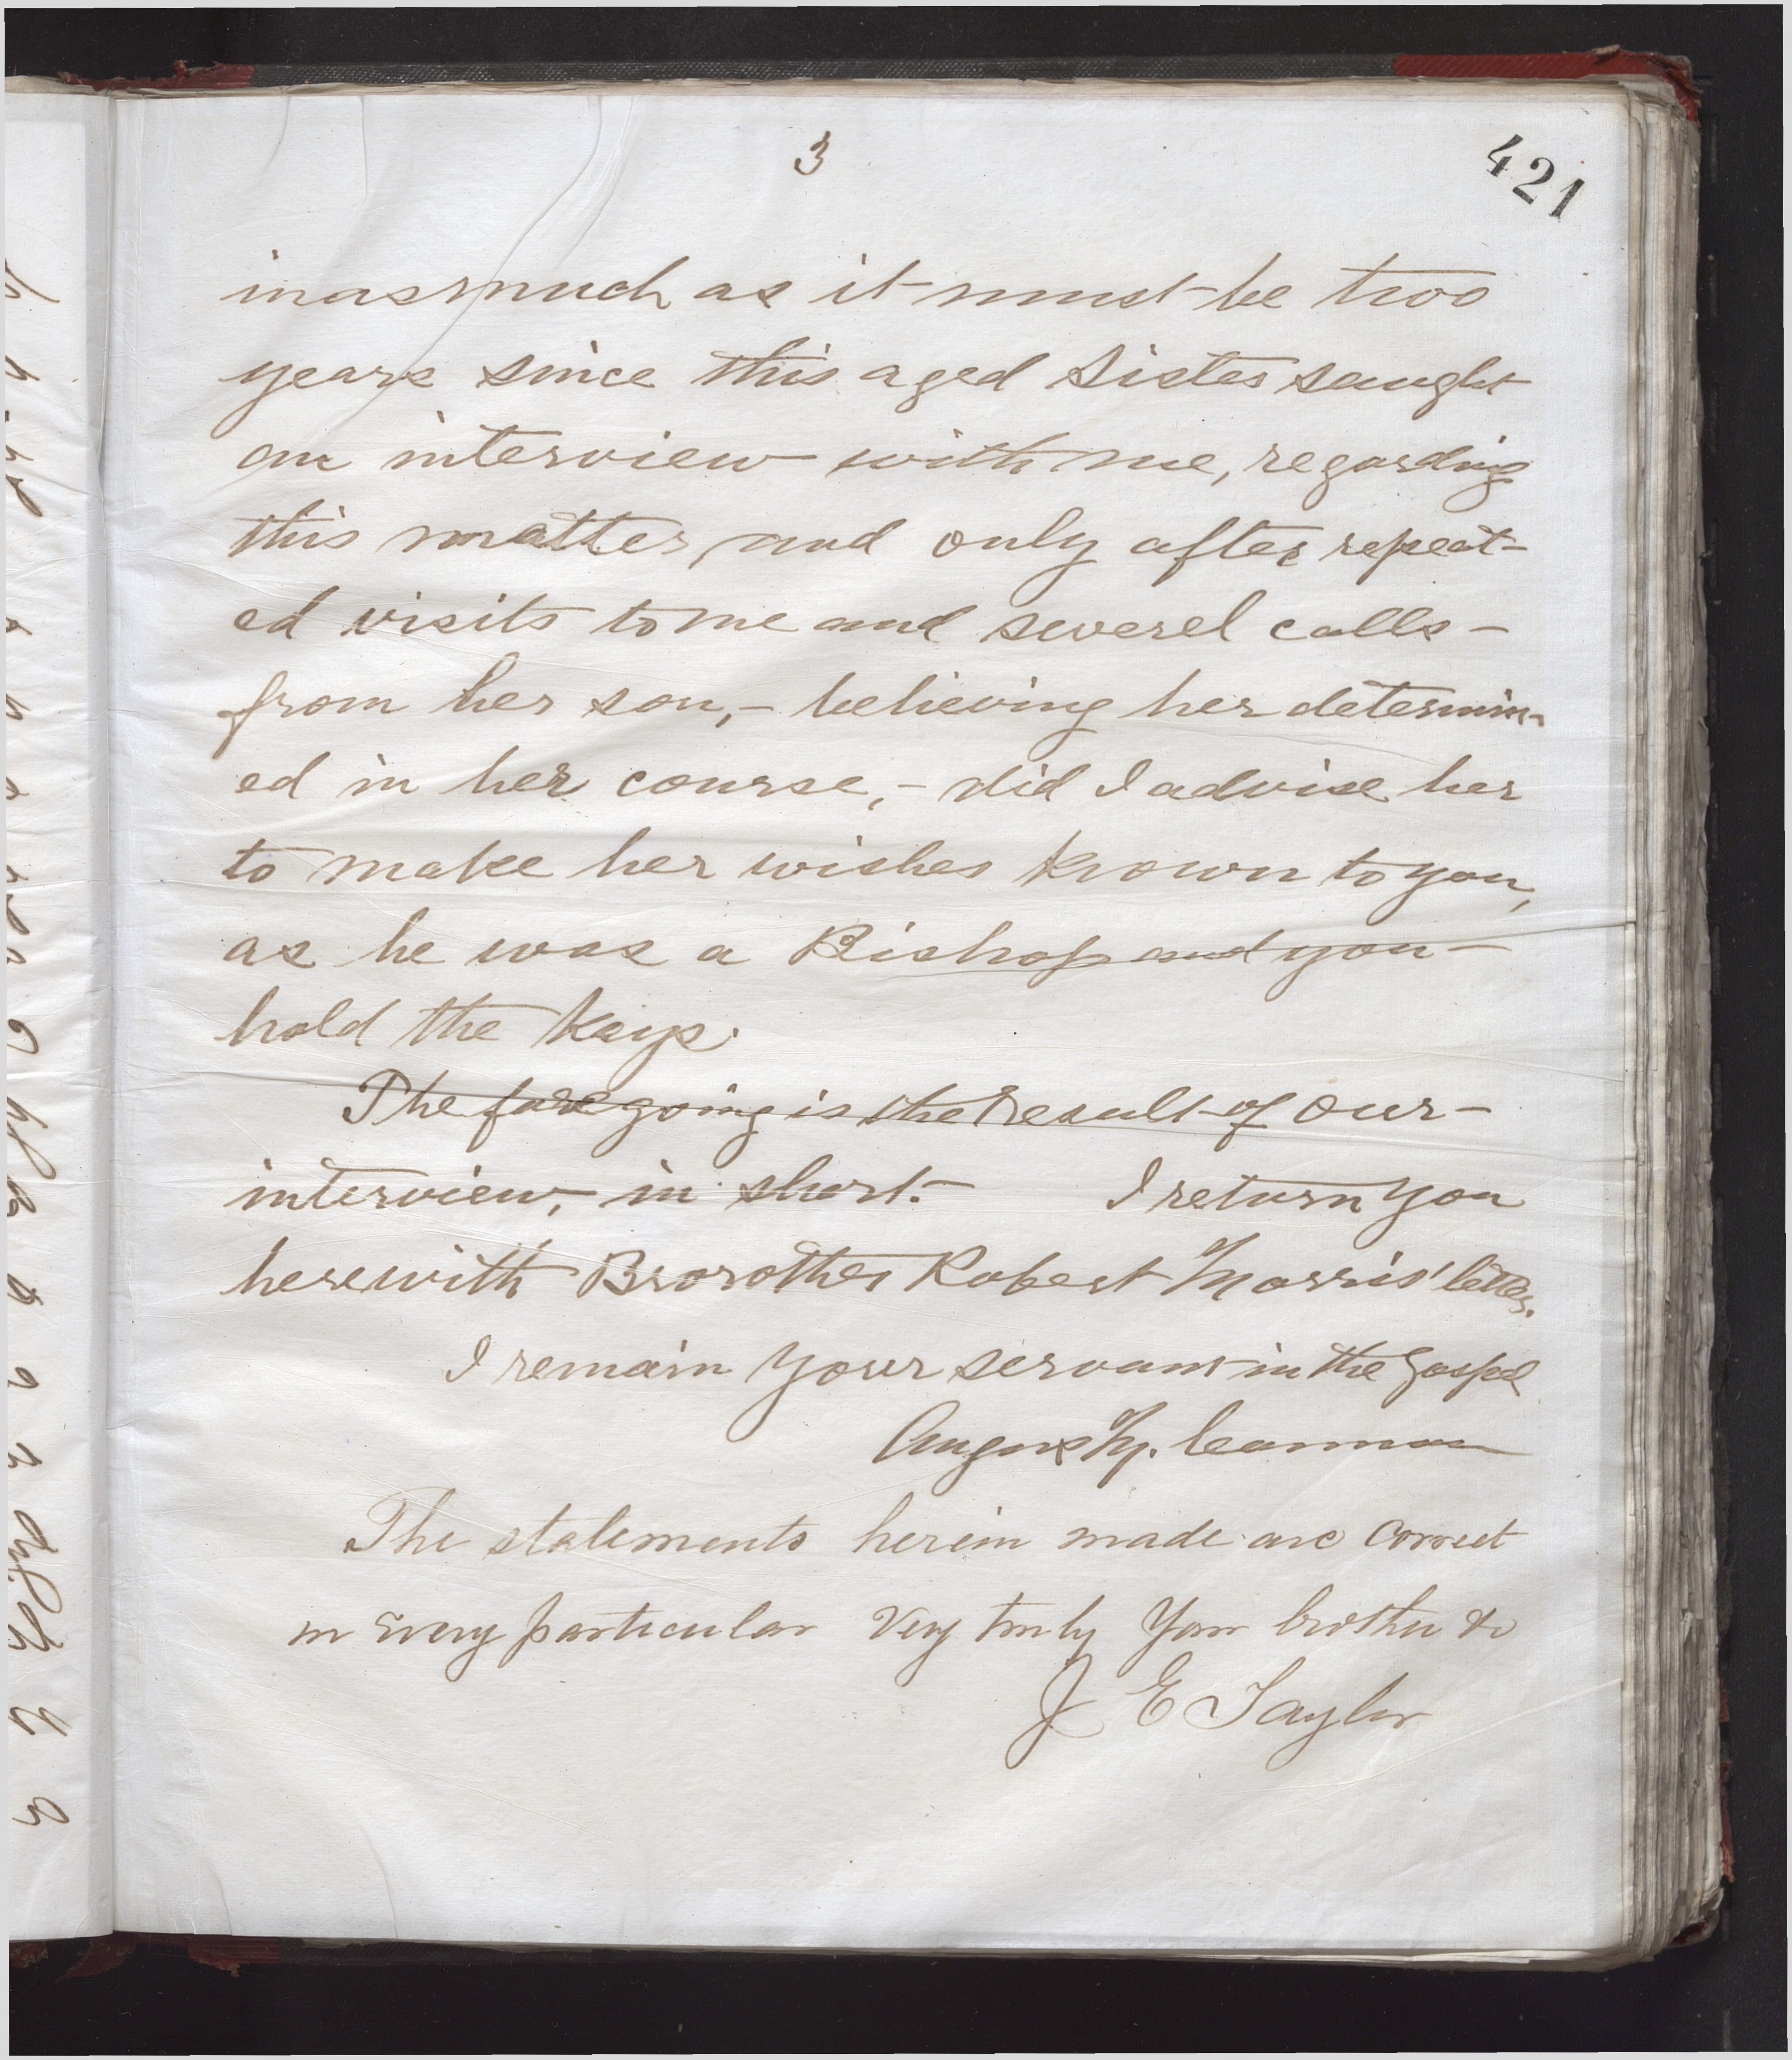 3
421
inasmuch as it must be two
years since this aged Sister saught
an interview with me, regarding
this matter, and only after repeat-
ed visits to me and severel calls -
from her son, - believing her determin-
ed in her course, - did I advise her
to make her wishes known to you,
as he was a Bishop and you -
hold the Keys.
The foregoing is the result of our -
interview, in short. - I return you
herewith Brorother Robert Morris' letter.
I remain your servant in the Gospel
Angus M. Cannon
The statements herein made are correct
in Every particular Very truly Your brother &c
J E Taylor